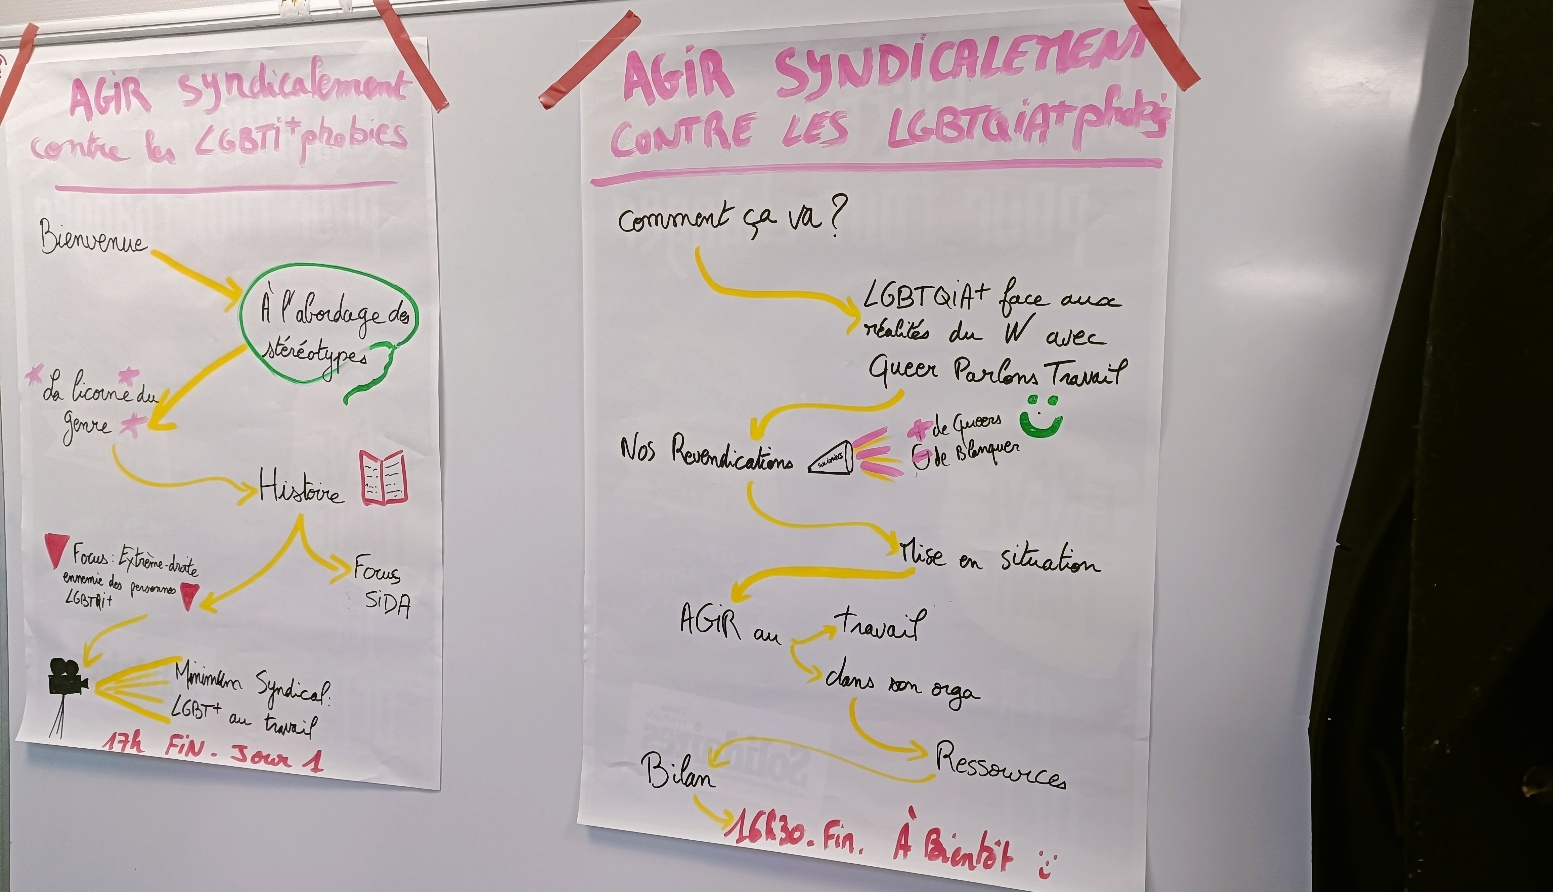 AGiR syndicalement
contre les LGBTi+phobies
Bienvenue
À l'abordage des
stéréotypes
La licorne du
genre
Histoire
Focus: Extrême-droite
ennemie des personnes
LGBTQi+
Focus
SiDA
Minimum Syndical:
LGBT+ au travail
17h FiN. Jour 1
AGiR SYNDICALEMENT
CONTRE LES LGBTQiA+phobies
Comment ça va?
LGBTQiA+ face aux
réalités du W avec
Queer Parlons Travail
Nos Revendications
SOLIDAIRES
+ de Queers
- de Blanquer
Mise en situation
AGiR au
travail
dans son orga
Ressources
Bilan
16h30. Fin. À Bientôt :)
Solidaires